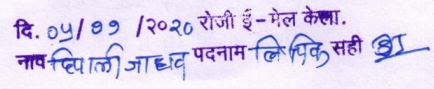 दि. ०५/११/२०२० रोजी ई-मेल केला.
नाव दिपाली जाधव पदनाम लिपिक सही